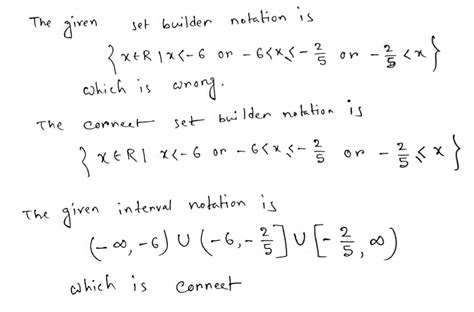 The given set builder notation is
{x ∈ R | x < -6 or -6 < x ≤ -2/5 or -2/5 < x}
which is wrong.
The correct set builder notation is
{x ∈ R | x < -6 or -6 < x ≤ -2/5 or -2/5 ≤ x}
The given interval notation is
(-∞, -6) ∪ (-6, -2/5] ∪ [-2/5, ∞)
which is correct